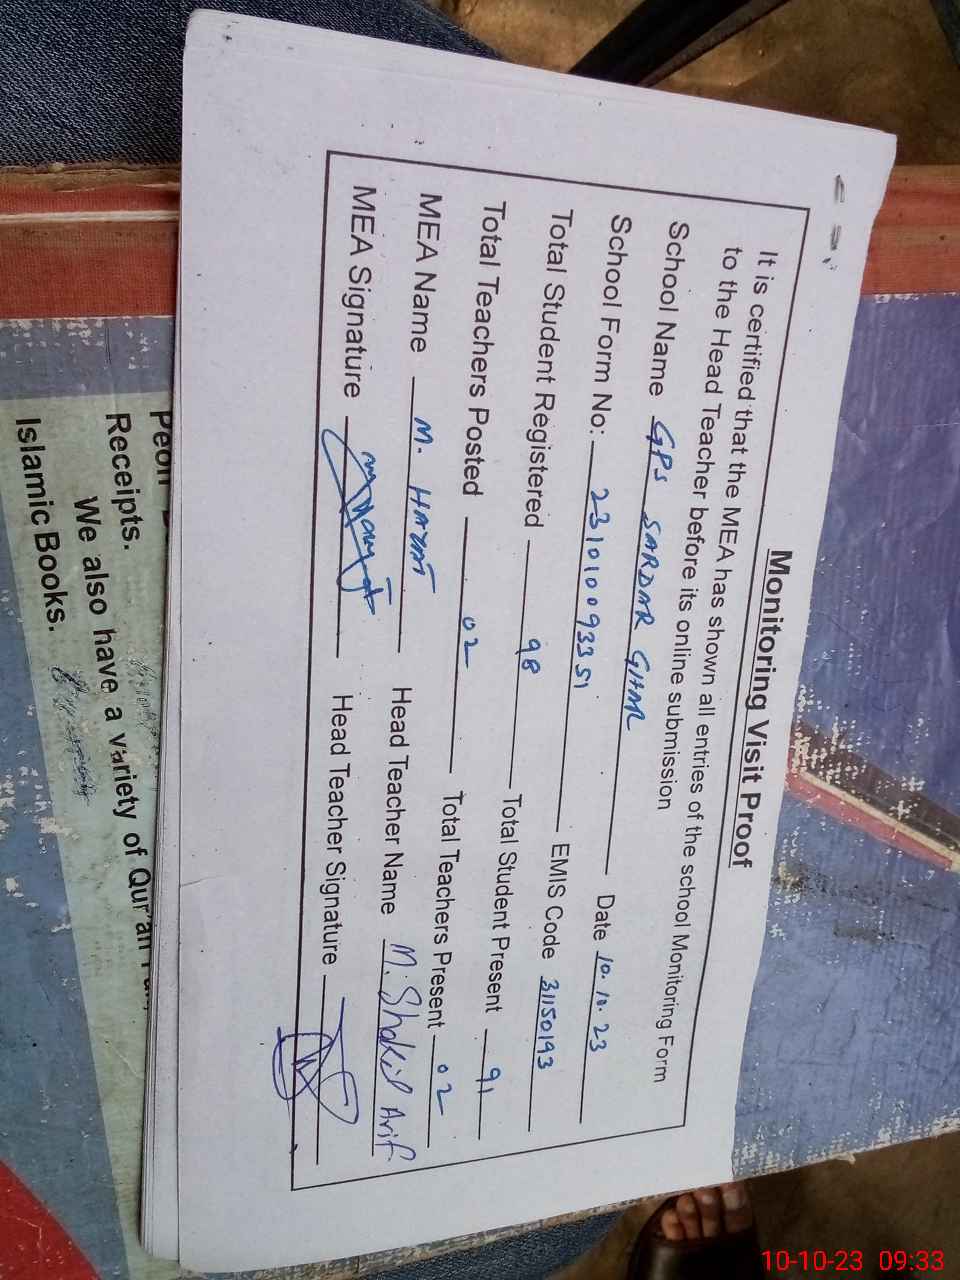 Monitoring Visit Proof
It is certified that the MEA has shown all entries of the school Monitoring Form
to the Head Teacher before its online submission
School Name GPS SARDAR GHAR
School Form No: 231010093351 Date 10.10.23
Total Student Registered 98 EMIS Code 31150193
Total Teachers Posted 02 Total Student Present 91
MEA Name M. HAYAT Total Teachers Present 02
MEA Signature Head Teacher Name M. Shakil Arif
Head Teacher Signature
Receipts.
We also have a variety of Qur'an
Islamic Books.
10-10-23 09:33